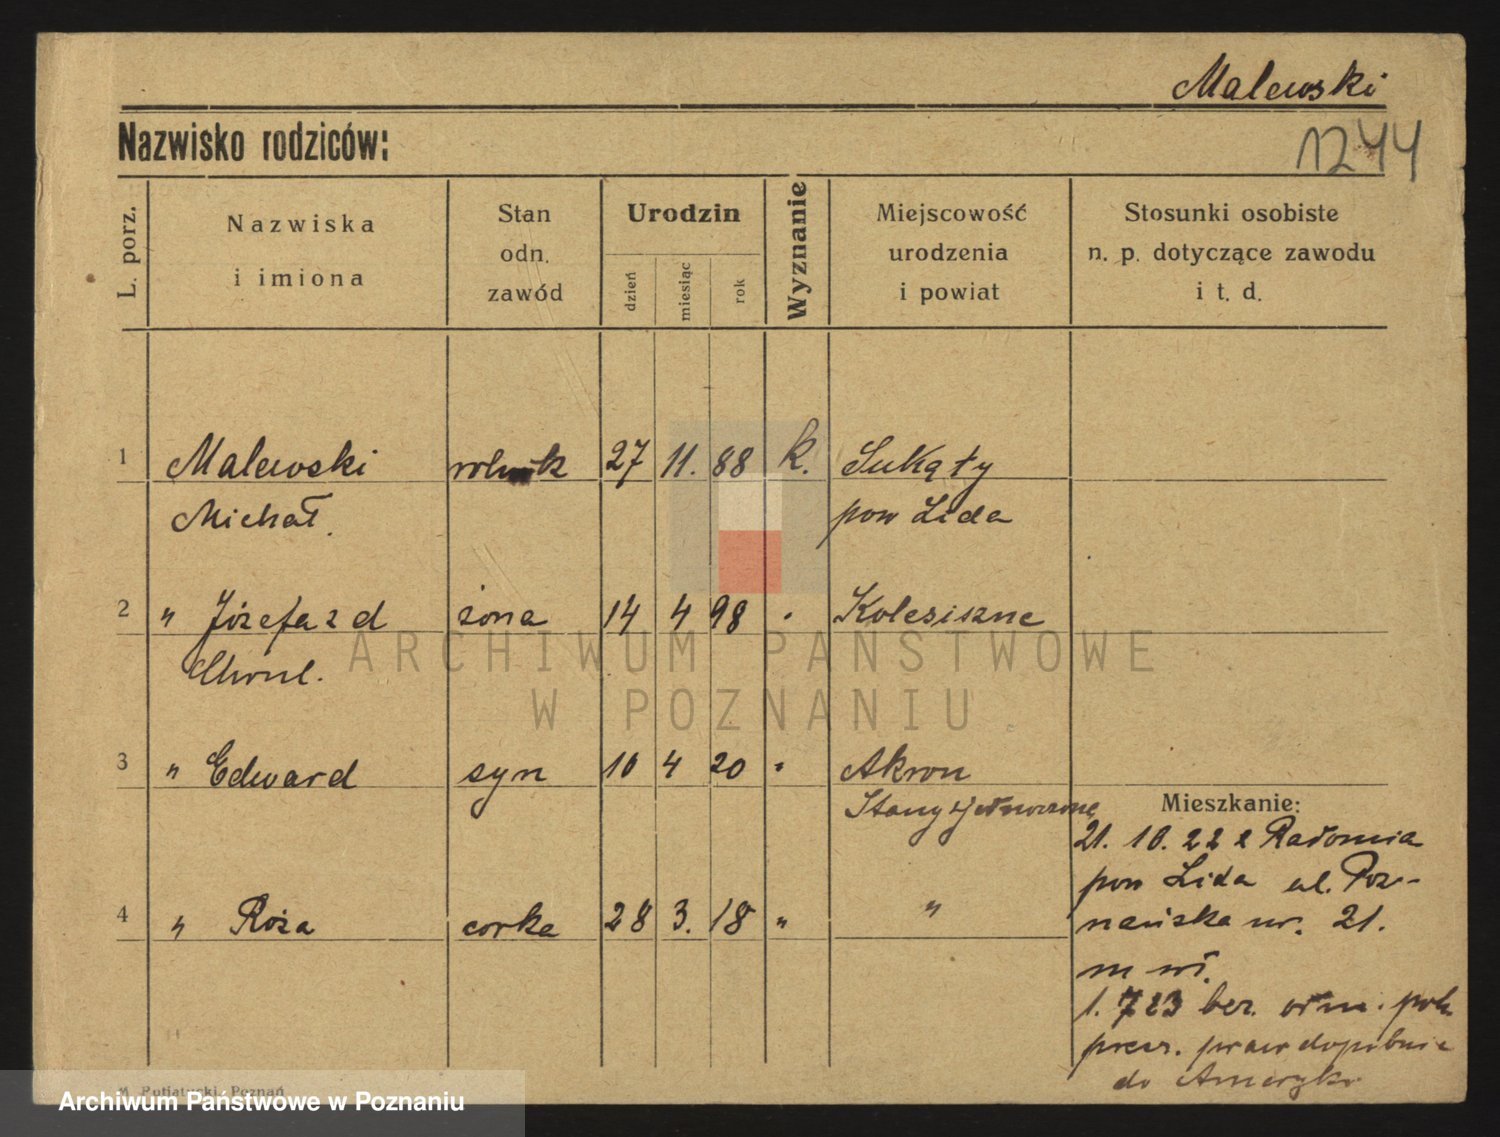 Malewski
Nazwisko rodziców:
1244
L. porz.
Nazwiska
i imiona
Stan
odn.
zawód
Urodzin
dzień
miesiąc
rok
Wyznanie
Miejscowość
urodzenia
i powiat
Stosunki osobiste
n. p. dotyczące zawodu
i t. d.
1 Malewski rolnik 27 11. 88 k. Sukąty
Michał. pow Lida
2 " Józefa z d żona 14 4 98 "
3 " Edward syn 10 4 20 " Akron
Stany zjednoczone
4 " Róża corka 28 3. 18 " "
Mieszkanie:
21. 10. 22 z Radomia
pow Lida ul. Poz-
nańska nr. 21.
m wł.
1. 7 23 bez odm. pol.
prawdopobnie
do Ameryki
ARCHIWUM PAŃSTWOWE
W POZNANIU
Poznań
Archiwum Państwowe w Poznaniu